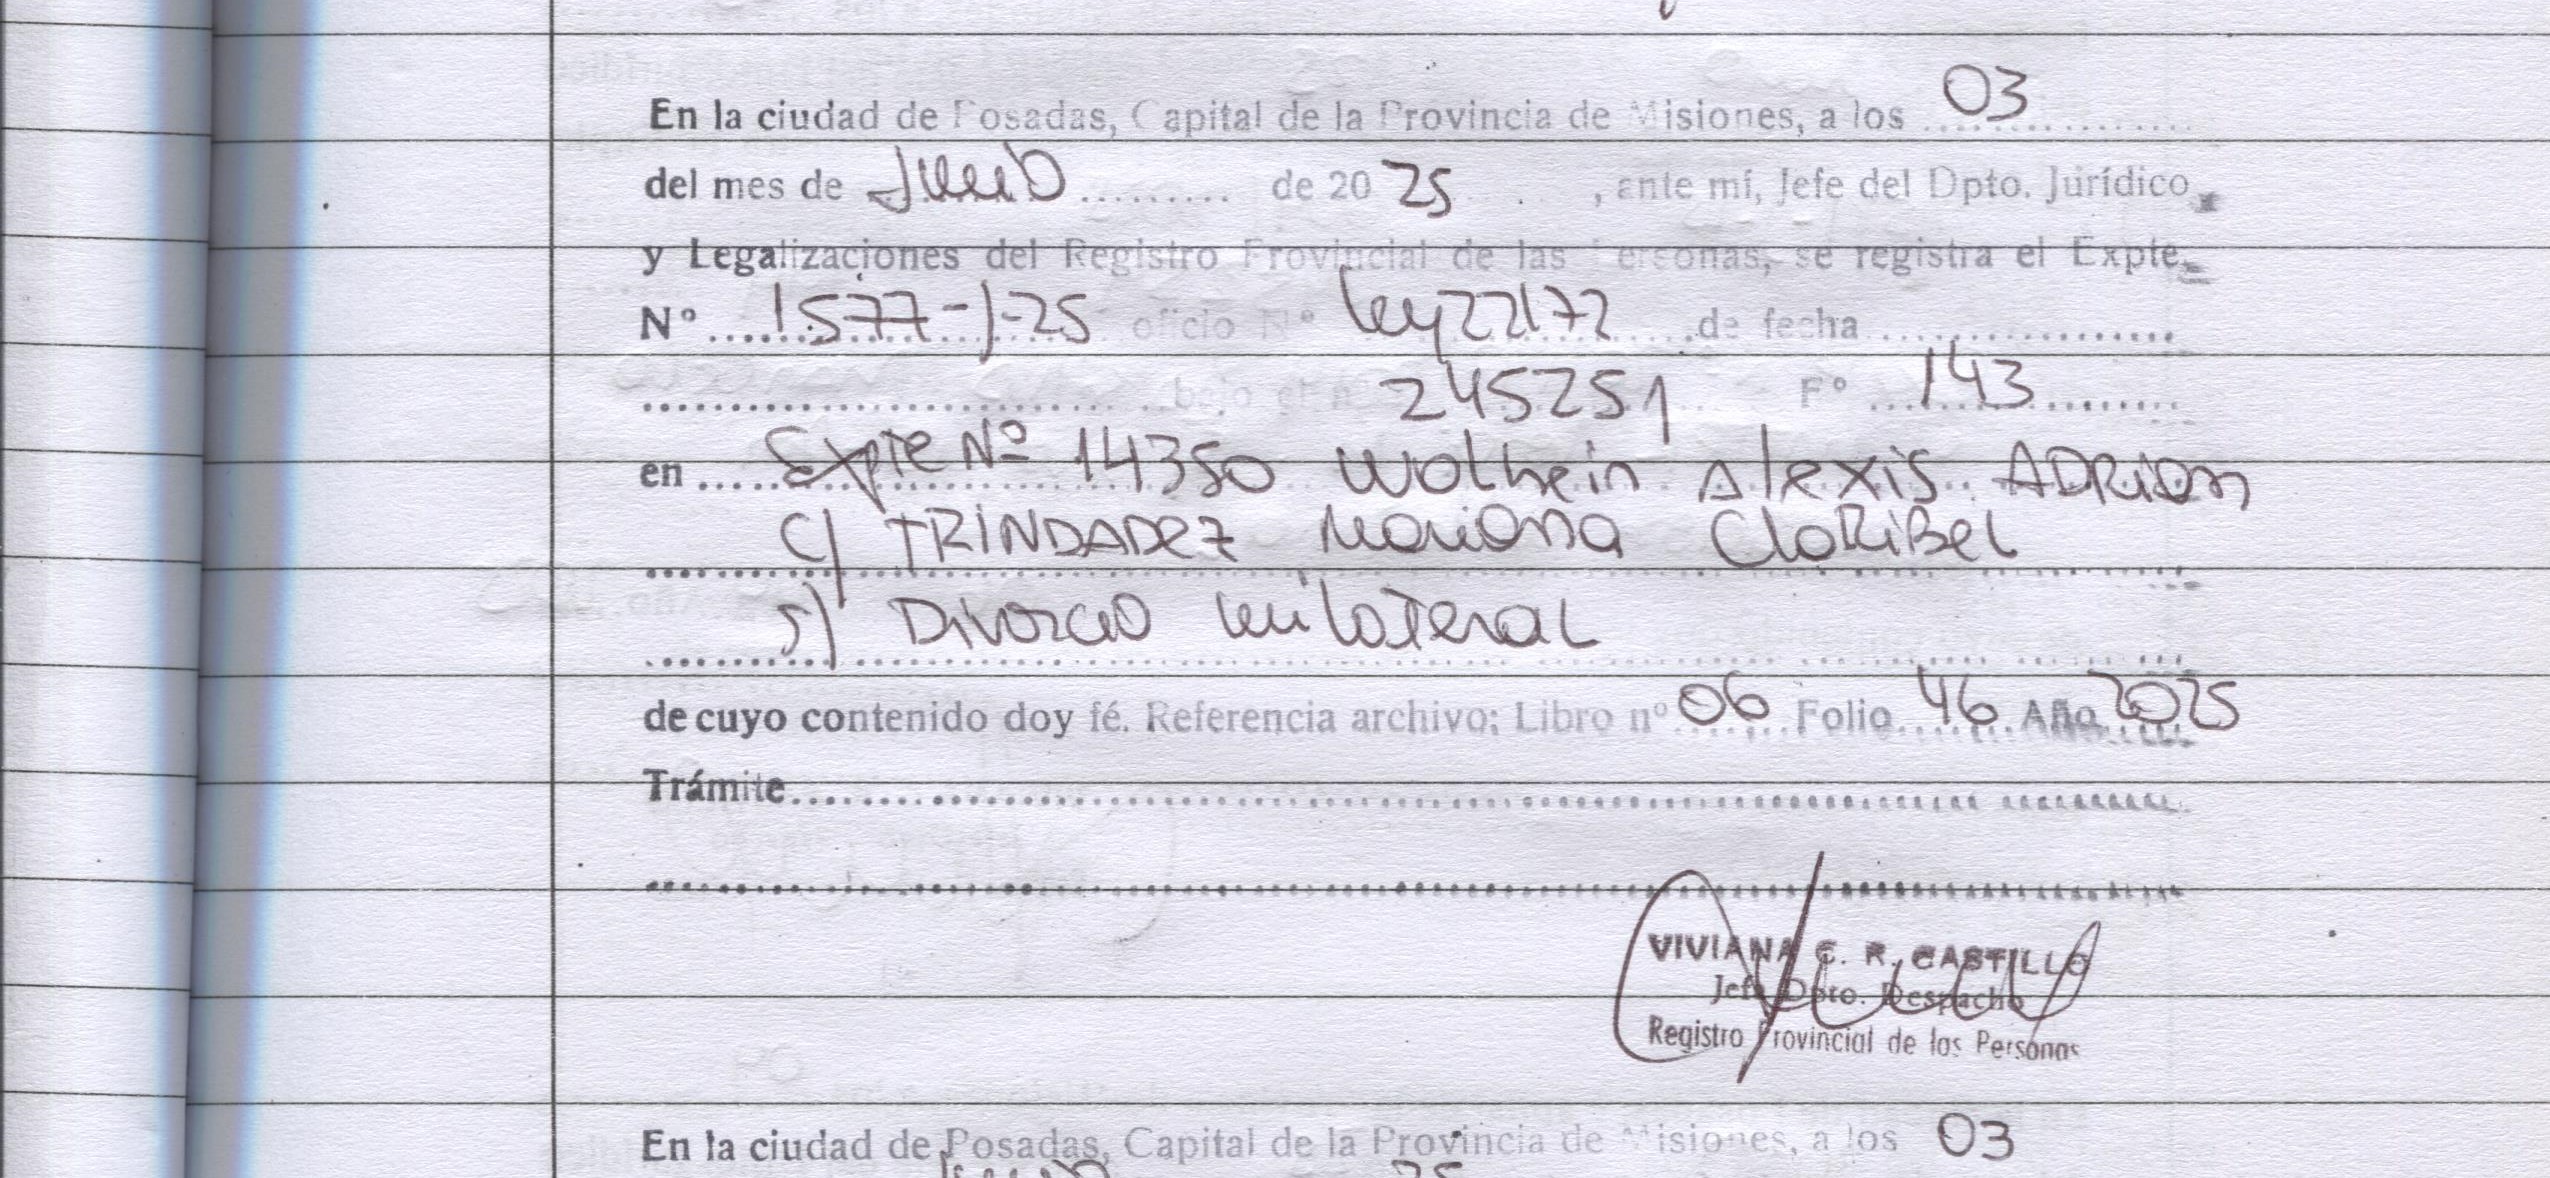 En la ciudad de Posadas, Capital de la Provincia de Misiones, a los 03
del mes de Junio de 20 25 , ante mí, Jefe del Dpto. Jurídico
y Legalizaciones del Registro Provincial de las Personas, se registra el Expte.
Nº 1577-J-25 oficio Nº ley 22172 de fecha
bajo el n 245251 Fº 143
en Expte Nº 14350 Wolhein Alexis ADRIAN
C/ TRINDADEZ Mariana ClaRiBel
s/ Divorcio unilateral
de cuyo contenido doy fé. Referencia archivo: Libro nº 06 Folio 46 Año 2025
Trámite
VIVIANA C. R. CASTILLO
Jefe Dpto. Despacho
Registro Provincial de las Personas
En la ciudad de Posadas, Capital de la Provincia de Misiones, a los 03